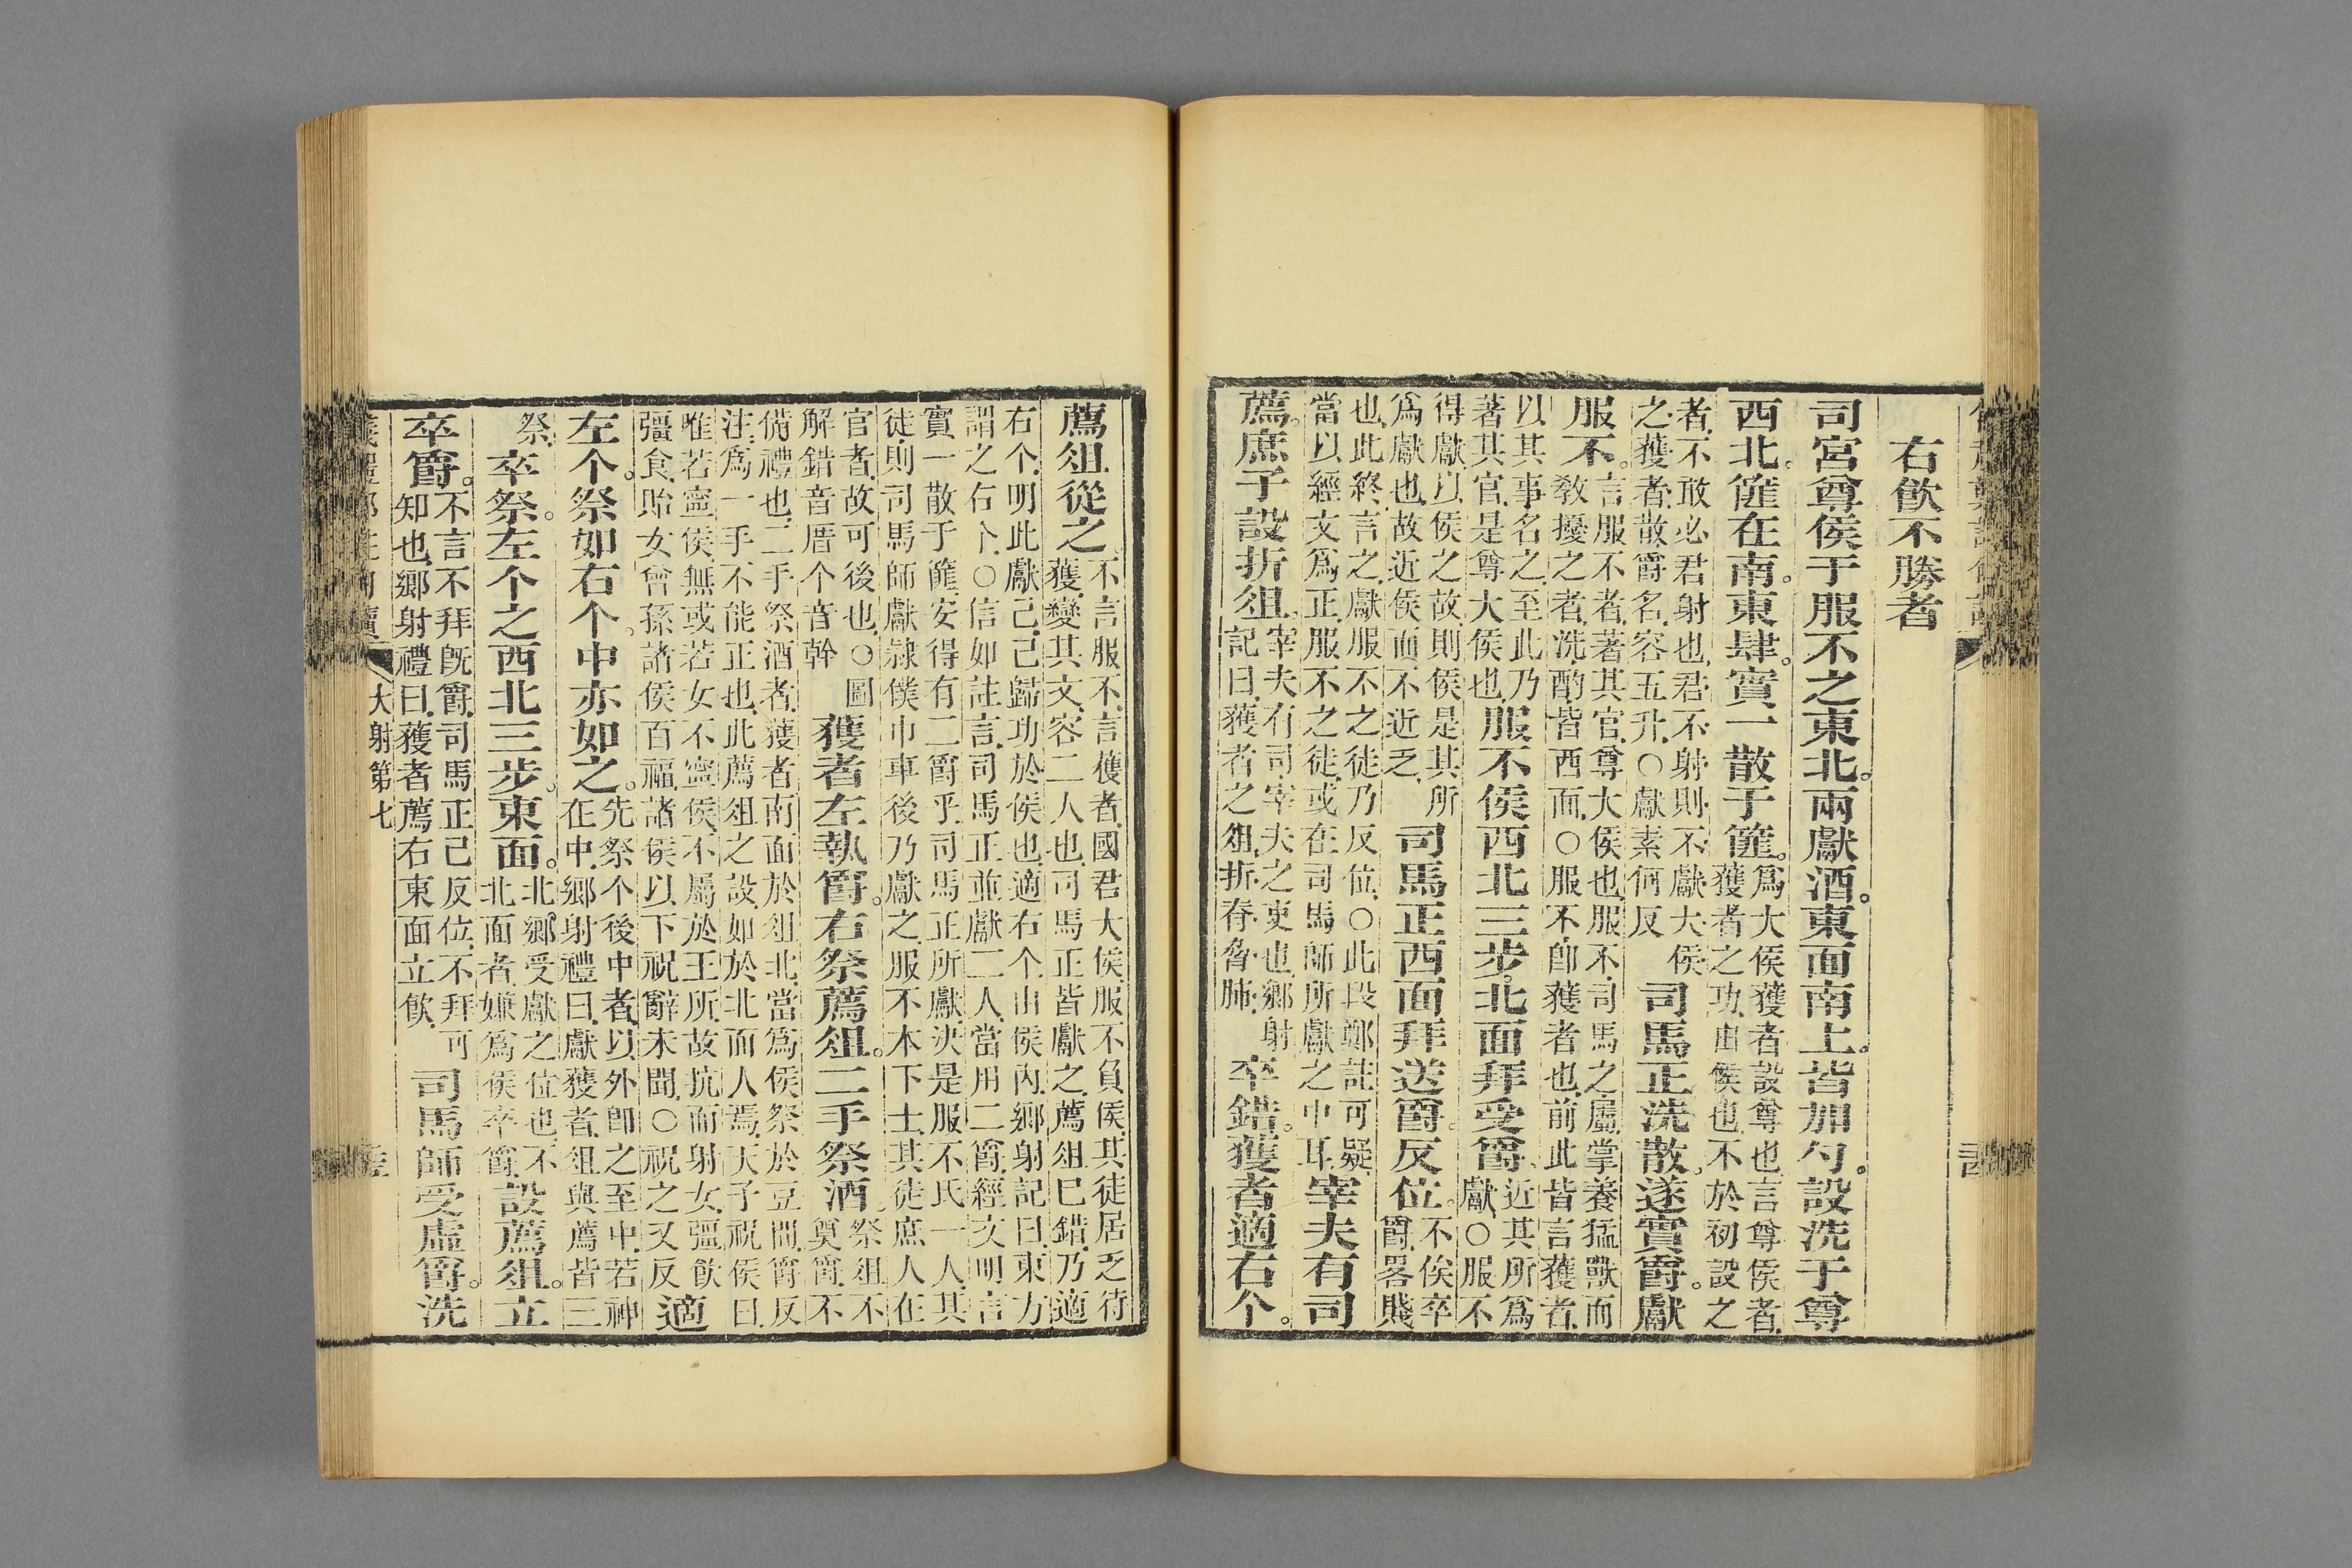 右飲不勝者
司宮尊侯于服不之東北。兩獻酒。東面南上。皆加勺。設洗于尊
西北。篚在南。東肆。實一散于篚。爲大侯獲者設尊也言尊侯者獲者之功由侯也不於初設之
者不敢必君射也君不射則不獻大侯之獲者散爵名容五升○獻素何反司馬正洗散。遂實爵。獻
服不。言服不者著其官尊大侯也服不司馬之屬掌養猛獸而教擾之者洗酌皆西面○服不卽獲者也前此皆言獲者
以其事名之至此乃著其官是尊大侯也服不侯西北三步。北面拜受爵。近其所爲獻○服不
得獻以侯之故則侯是其所爲獻也故近侯而不近乏司馬正西面拜送爵。反位。不俟卒爵畧賤
也此終言之獻服不之徒乃反位○此段鄭註可疑當以經文爲正服不之徒或在司馬師所獻之中耳宰夫有司
薦。庶子設折俎。宰夫有司宰夫之吏也鄉射記曰獲者之俎折脊脅肺卒錯。獲者適右个。
薦俎從之。不言服不言獲者國君大侯服不負侯其徒居乏待獲變其文容二人也司馬正皆獻之薦俎已錯乃適
右个明此獻己己歸功於侯也適右个由侯內鄉射記曰東方謂之右个○信如註言司馬正並獻二人當用二爵經文明言
實一散于篚安得有二爵乎司馬正所獻決是服不氏一人其徒則司馬師獻隸僕巾車後乃獻之服不本下士其徒庶人在
官者故可後也○圖解錯音厝个音幹獲者左執爵。右祭薦俎。二手祭酒。祭俎不奠爵不
備禮也二手祭酒者獲者南面於俎北當爲侯祭於豆間爵反注爲一手不能正也此薦俎之設如於北面人焉天子祝侯曰
唯若寧侯無或若女不寧侯不屬於王所故抗而射女彊飲彊食貽女曾孫諸侯百福諸侯以下祝辭未聞○祝之又反適
左个。祭如右个。中亦如之。先祭个後中者以外卽之至中若神在中鄉射禮曰獻獲者俎與薦皆三
祭卒祭。左个之西北三步。東面。北鄉受獻之位也不北面者嫌爲侯卒爵設薦俎。立
卒爵。不言不拜旣爵司馬正已反位不拜可知也鄉射禮曰獲者薦右東面立飲司馬師受虛爵。洗
大射第七